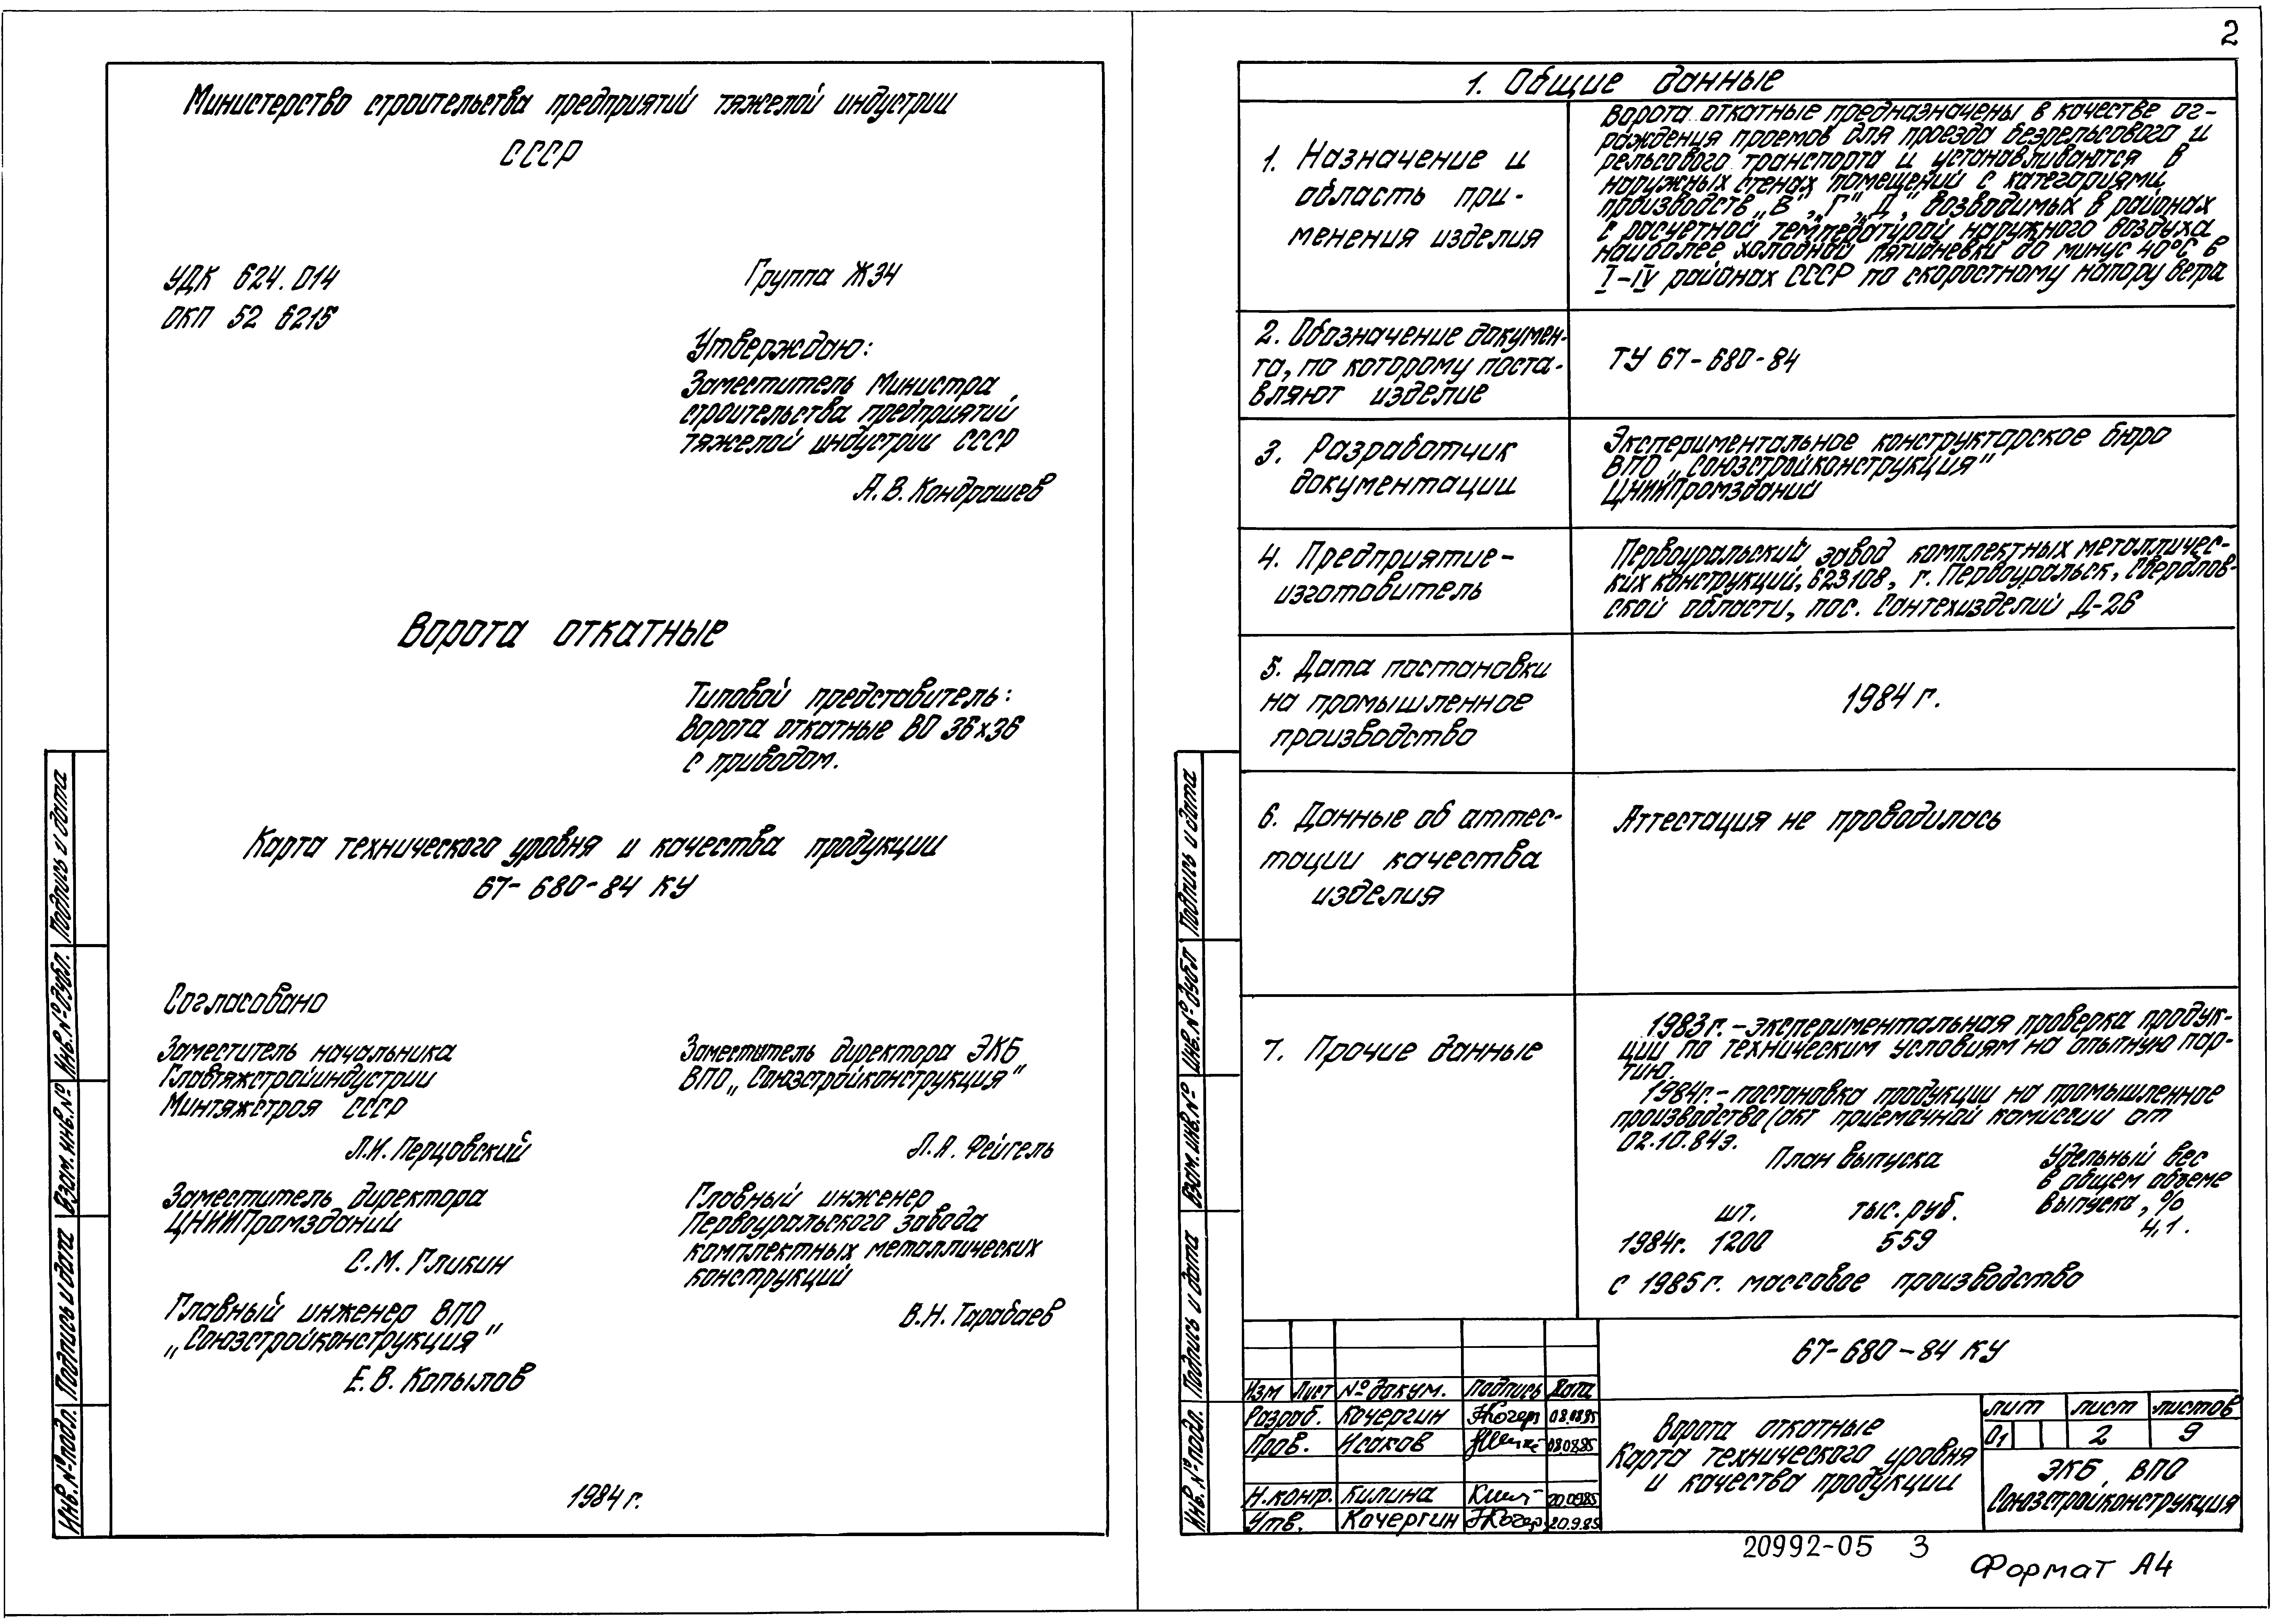 Министерство строительства предприятий тяжелой индустрии
СССР
УДК 624.014
ОКП 52 6215
Группа Ж34
Утверждаю:
Заместитель Министра
строительства предприятий
тяжелой индустрии СССР
А.В. Кондрашев
Ворота откатные
Типовой представитель:
Ворота откатные ВО 36х36
с приводом.
Карта технического уровня и качества продукции
67-680-84 КУ
Согласовано
Заместитель начальника
Главтяжстройиндустрии
Минтяжстроя СССР
Л.И. Перцовский
Заместитель директора
ЦНИИПромзданий
С.М. Гликин
Главный инженер ВПО
„Союзстройконструкция"
Е.В. Копылов
Заместитель директора ЭКБ
ВПО „Союзстройконструкция"
Л.А. Фейгель
Главный инженер
Первоуральского завода
комплектных металлических
конструкций
В.Н. Тарабаев
1984 г.
Инв.№подл. Подпись и дата Взам.инв.№ Инв.№дубл. Подпись и дата
2
1. Общие данные
1. Назначение и
область при-
менения изделия
Ворота откатные предназначены в качестве ог-
раждения проемов для проезда безрельсового и
рельсового транспорта и устанавливаются в
наружных стенах помещений с категориями
производств „В", „Г", „Д", возводимых в районах
с расчетной температурой наружного воздуха
наиболее холодной пятидневки до минус 40°С в
I-IV районах СССР по скоростному напору ветра
2. Обозначение докумен-
та, по которому поста-
вляют изделие
ТУ 67-680-84
3. Разработчик
документации
Экспериментальное конструкторское бюро
ВПО „Союзстройконструкция"
ЦНИИПромзданий
4. Предприятие-
изготовитель
Первоуральский завод комплектных металличес-
ких конструкций, 623108, г. Первоуральск, Свердлов-
ской области, пос. Сантехизделий Д-26
5. Дата постановки
на промышленное
производство
1984 г.
6. Данные об аттес-
тации качества
изделия
Аттестация не проводилась
7. Прочие данные
1983 г. - экспериментальная проверка продук-
ции по техническим условиям на опытную пар-
тию.
1984г. - постановка продукции на промышленное
производство (акт приемочной комиссии от
02.10.84г.
План выпуска
Удельный вес
в общем объеме
выпуска, %
шт. тыс. руб.
1984г. 1200 559 4,1.
с 1985 г. массовое производство
Инв.№подл. Подпись и дата Взам.инв.№ Инв.№дубл Подпись и дата
67-680-84 КУ
Изм Лист № докум. Подпись Дата
Разраб. Кочергин 08.08.85
Пров. Исаков 08.08.85
Н.контр. Килина 20.09.85
Утв. Кочергин 20.9.85
Ворота откатные
Карта технического уровня
и качества продукции
лит лист листов
О1 2 9
ЭКБ ВПО
Союзстройконструкция
20992-05 3
Формат А4